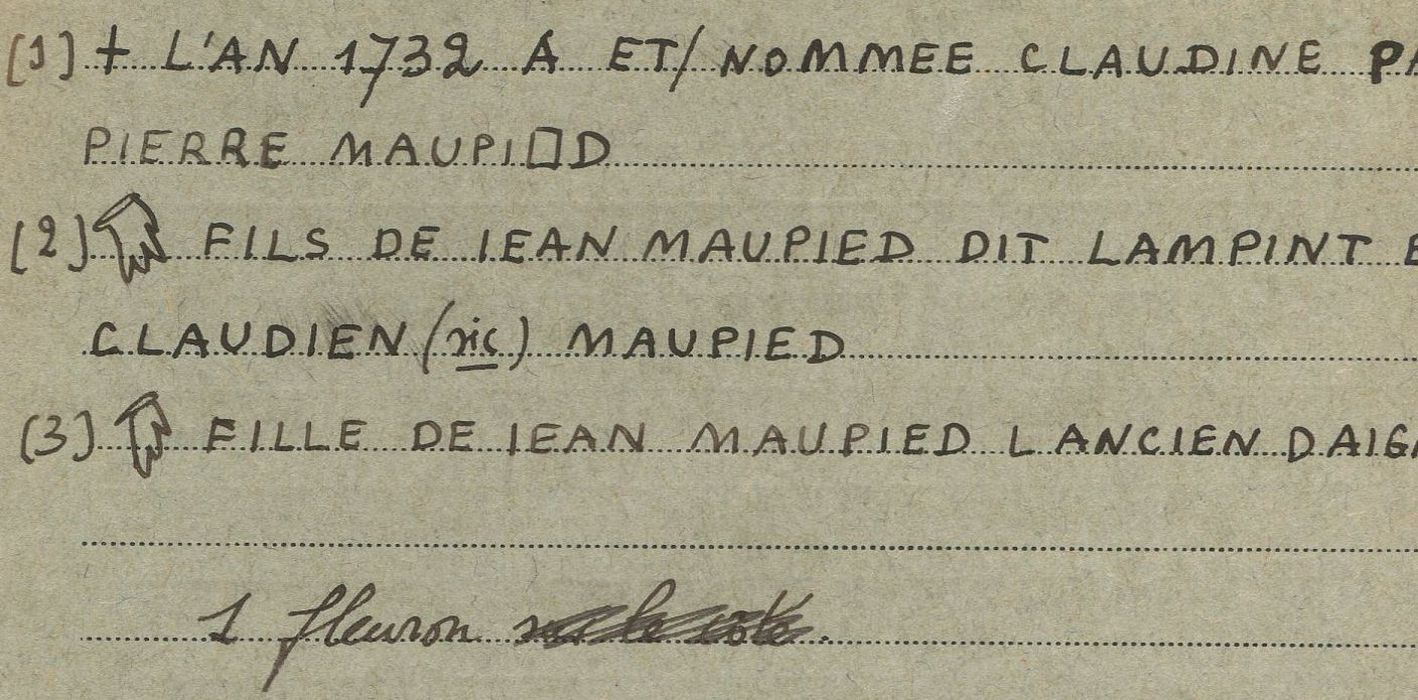 [1] + L'AN 1732 A ET/ NOMMEE CLAUDINE PA
PIERRE MAUPI□D
[2] FILS DE IEAN MAUPIED DIT LAMPINT E
CLAUDIEN (sic) MAUPIED
[3] FILLE DE IEAN MAUPIED L ANCIEN D AIGA
1 fleuron